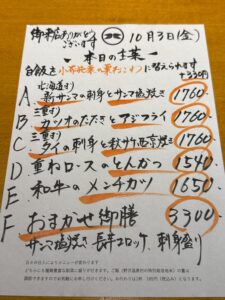 御来店ありがとう
ございます
10月3日(金)
ー 本日の主菜 ー
白飯を小芥北菜の栗おこわに替えられます
+330円
北海道より
A 新サンマの刺身とサンマ塩焼き 1760-
三重より
B カツオのたたきとアジフライ 1760-
三重より
C タイの刺身と秋サケ西京焼き 1760-
D 重ねロースのとんかつ 1540-
E 和牛のメンチカツ 1650-
F おまかせ御膳 3300-
サンマ塩焼き 長芋コロッケ、刺身盛り
日々の仕入によりメニューが変わります